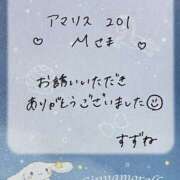 アマリス 201
♡ Mさま ♡
お誘いいただき
ありがとうございました☺
すずね